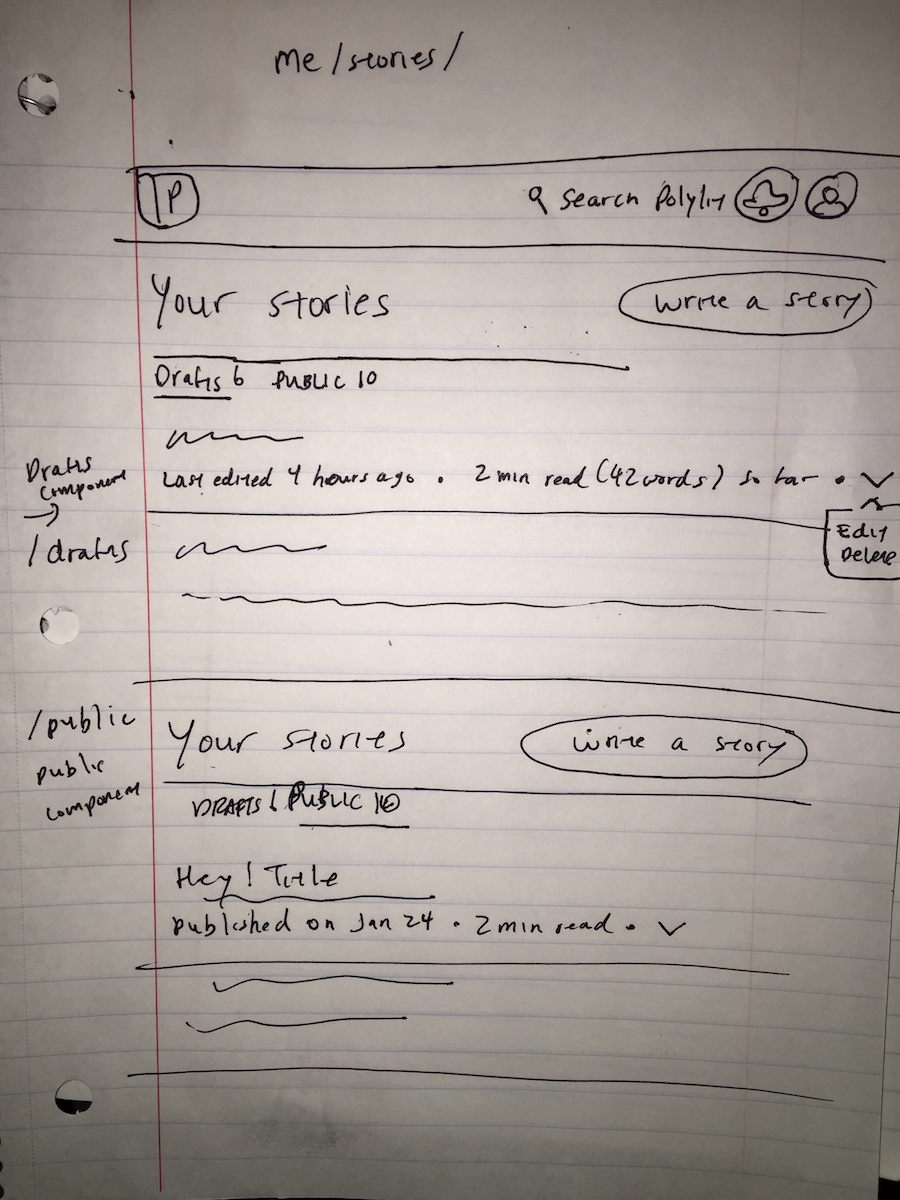 me/stories/
P
Search Polylit
Your stories
Write a story
Drafts 6 PUBLIC 10
Last edited 4 hours ago . 2 min read (42 words) so far .
Drafts
component
/drafts
Edit
Delete
/public
public
component
Your stories
Write a story
DRAFTS PUBLIC 10
Hey! Title
published on Jan 24 . 2 min read .